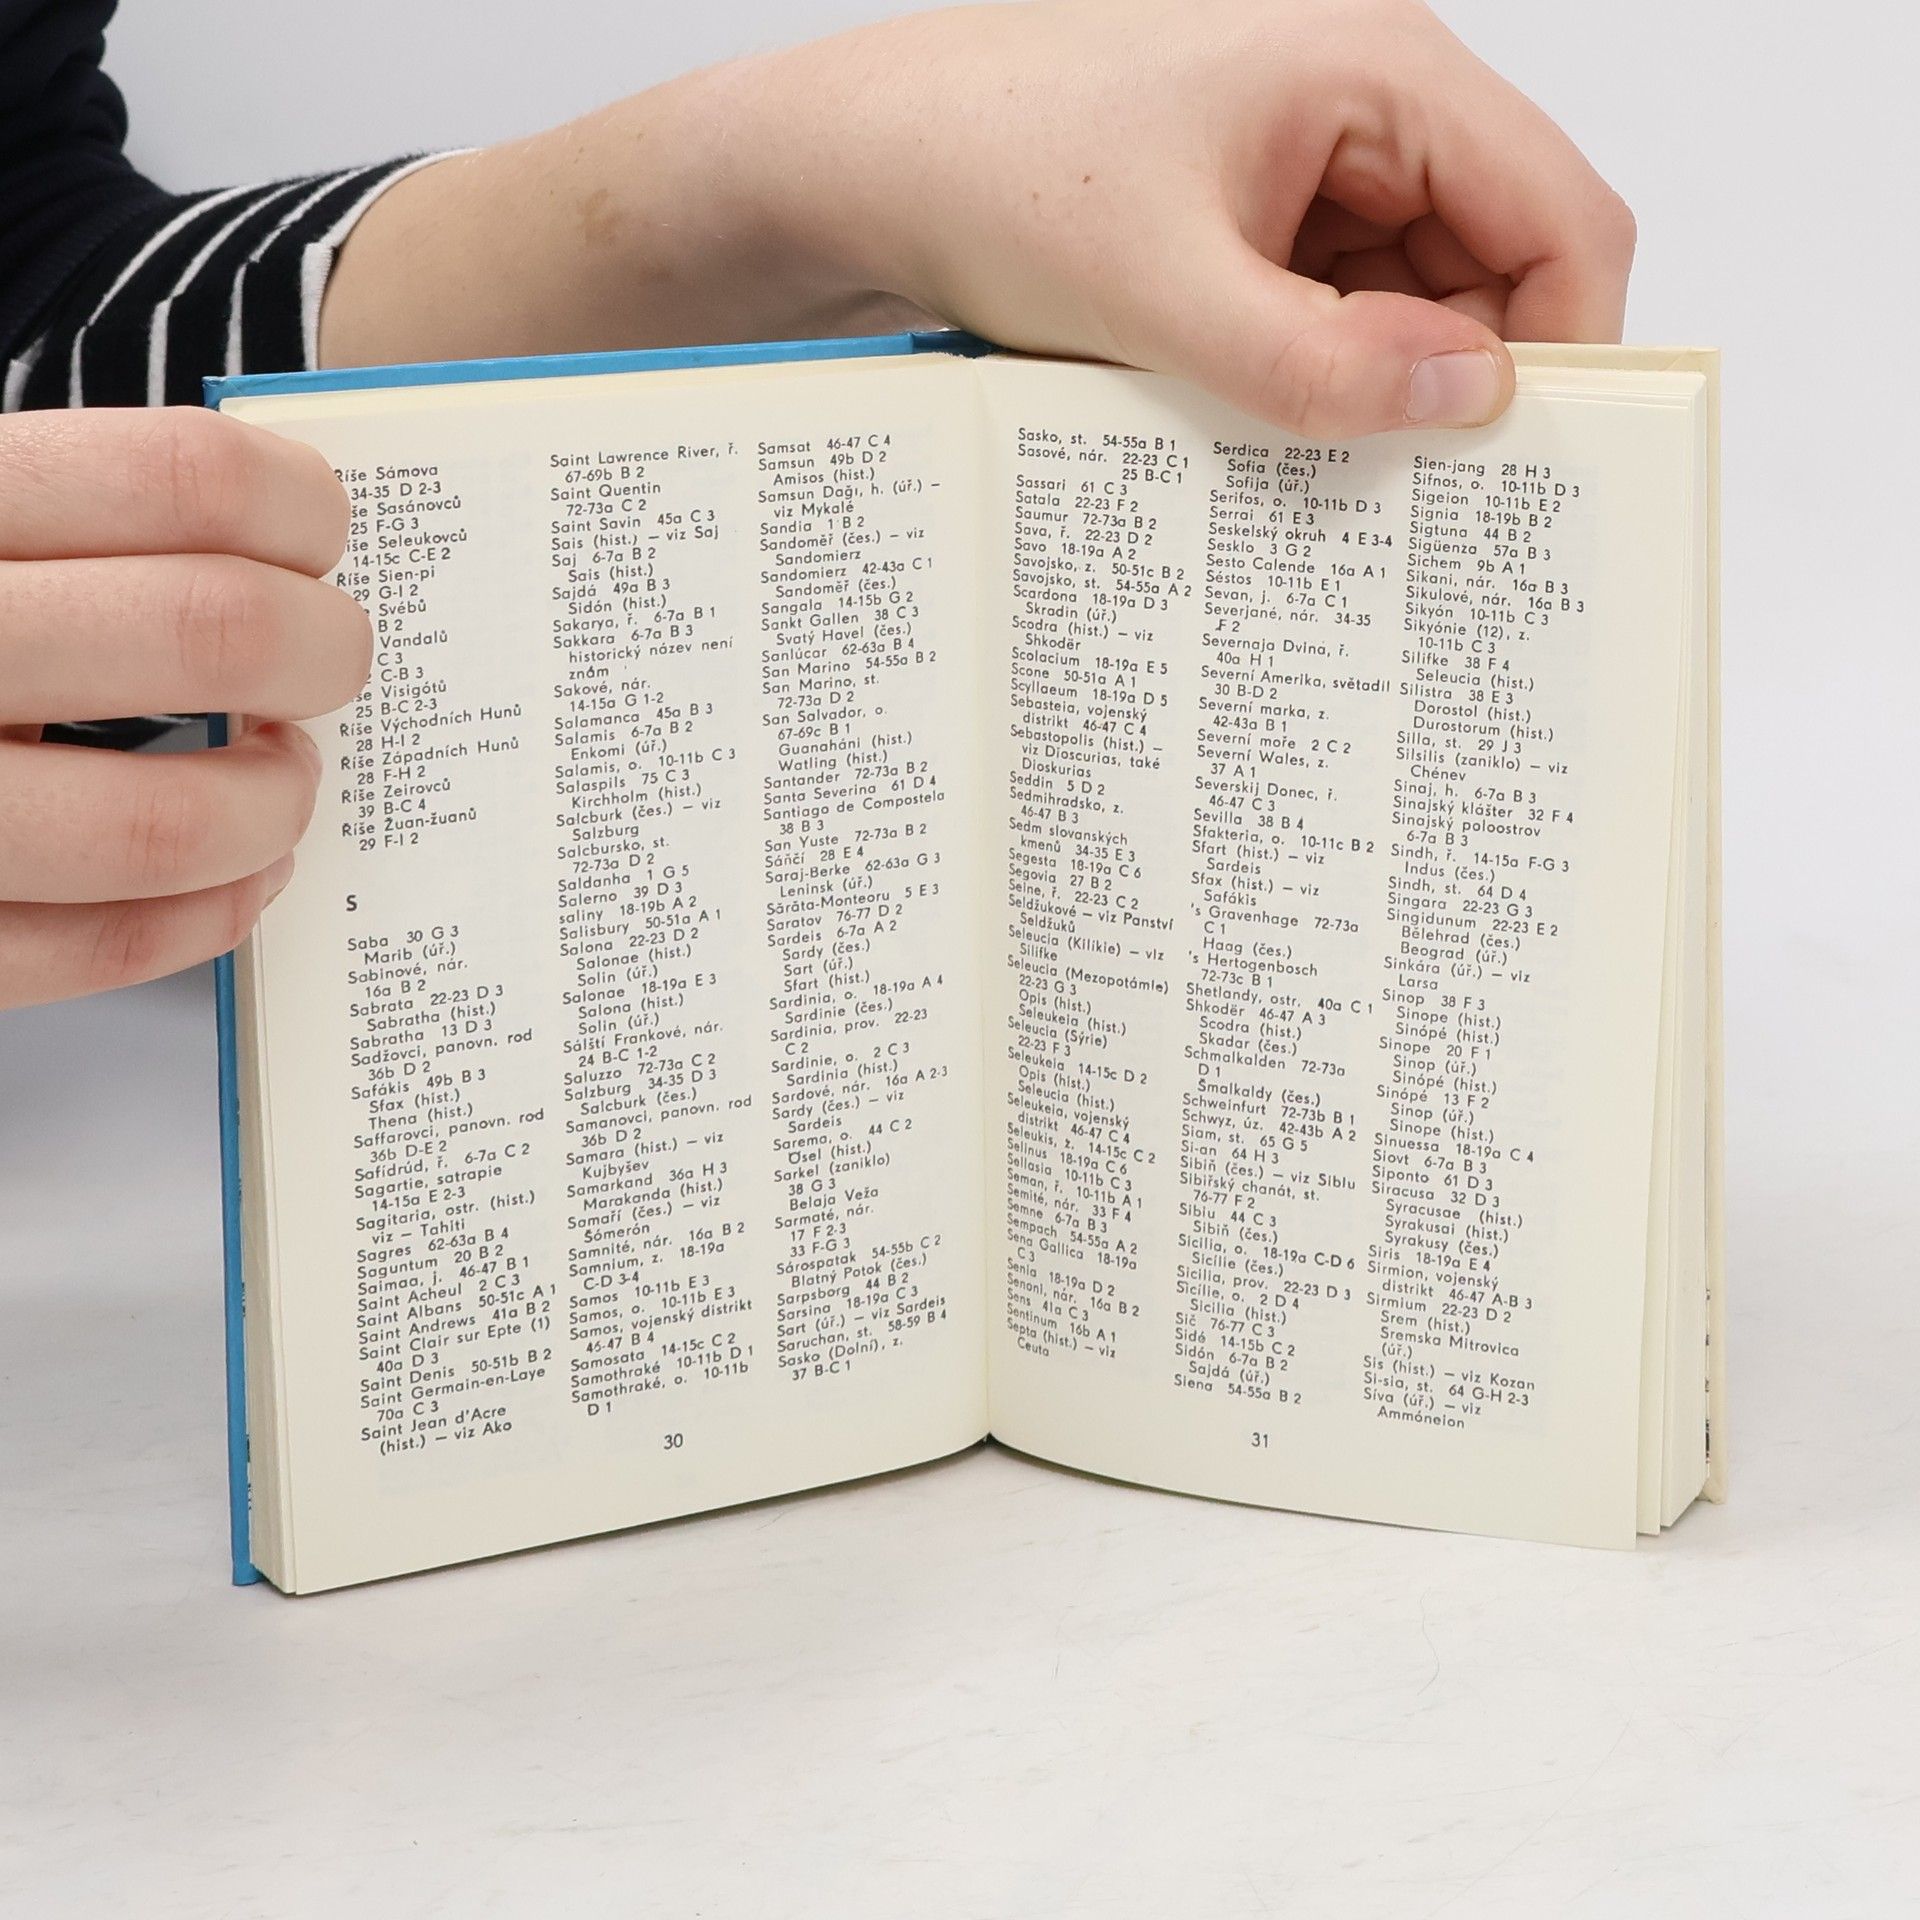 Říše Sámova
34-35 D 2-3
še Sasánovců
25 F-G 3
íše Seleukovců
14-15c C-E 2
Říše Sien-pi
29 G-I 2
Svébů
B 2
Vandalů
C 3
C-B 3
Visigótů
25 B-C 2-3
Říše Východních Hunů
28 H-I 2
Říše Západních Hunů
28 F-H 2
Říše Zeirovců
39 B-C 4
Říše Žuan-žuanů
29 F-I 2
S
Saba 30 G 3
Marib (úř.)
Sabinové, nár.
16a B 2
Sabrata 22-23 D 3
Sabratha (hist.)
Sabratha 13 D 3
Sadžovci, panovn. rod
36b D 2
Safákis 49b B 3
Sfax (hist.)
Thena (hist.)
Saffarovci, panovn. rod
36b D-E 2
Safídrúd, ř. 6-7a C 2
Sagartie, satrapie
14-15a E 2-3
Sagitaria, ostr. (hist.)
viz – Tahiti
Sagres 62-63a B 4
Saguntum 20 B 2
Saimaa, j. 46-47 B 1
Saint Acheul 2 C 3
Saint Albans 50-51c A 1
Saint Andrews 41a B 2
Saint Clair sur Epte (1)
40a D 3
Saint Denis 50-51b B 2
Saint Germain-en-Laye
70a C 3
Saint Jean d'Acre
(hist.) – viz Ako
Saint Lawrence River, ř.
67-69b B 2
Saint Quentin
72-73a C 2
Saint Savin 45a C 3
Sais (hist.) – viz Saj
Saj 6-7a B 2
Sais (hist.)
Sajdá 49a B 3
Sidón (hist.)
Sakarya, ř. 6-7a B 1
Sakkara 6-7a B 3
historický název není
znám
Sakové, nár.
14-15a G 1-2
Salamanca 45a B 3
Salamis 6-7a B 2
Enkomi (úř.)
Salamis, o. 10-11b C 3
Salaspils 75 C 3
Kirchholm (hist.)
Salcburk (čes.) – viz
Salzburg
Salcbursko, st.
72-73a D 2
Saldanha 1 G 5
Salerno 39 D 3
saliny 18-19b A 2
Salisbury 50-51a A 1
Salona 22-23 D 2
Salonae (hist.)
Solin (úř.)
Salonae 18-19a E 3
Salona (hist.)
Solin (úř.)
Sálští Frankové, nár.
24 B-C 1-2
Saluzzo 72-73a C 2
Salzburg 34-35 D 3
Salcburk (čes.)
Samanovci, panovn. rod
36b D 2
Samara (hist.) – viz
Kujbyšev
Samarkand 36a H 3
Marakanda (hist.)
Samaří (čes.) – viz
Šómerón
Samnité, nár. 16a B 2
Samnium, z. 18-19a
C-D 3-4
Samos 10-11b E 3
Samos, o. 10-11b E 3
Samos, vojenský distrikt
46-47 B 4
Samosata 14-15c C 2
Samothraké 10-11b D 1
Samothraké, o. 10-11b
D 1
Samsat 46-47 C 4
Samsun 49b D 2
Amisos (hist.)
Samsun Dağı, h. (úř.) –
viz Mykalé
Sandia 1 B 2
Sandoměř (čes.) – viz
Sandomierz
Sandomierz 42-43a C 1
Sandoměř (čes.)
Sangala 14-15b G 2
Sankt Gallen 38 C 3
Svatý Havel (čes.)
Sanlúcar 62-63a B 4
San Marino 54-55a B 2
San Marino, st.
72-73a D 2
San Salvador, o.
67-69c B 1
Guanaháni (hist.)
Watling (hist.)
Santander 72-73a B 2
Santa Severina 61 D 4
Santiago de Compostela
38 B 3
San Yuste 72-73a B 2
Sáňčí 28 E 4
Saraj-Berke 62-63a G 3
Leninsk (úř.)
Sărăta-Monteoru 5 E 3
Saratov 76-77 D 2
Sardeis 6-7a A 2
Sardy (čes.)
Sart (úř.)
Sfart (hist.)
Sardinia, o. 18-19a A 4
Sardinie (čes.)
Sardinia, prov. 22-23
C 2
Sardinie, o. 2 C 3
Sardinia (hist.)
Sardové, nár. 16a A 2-3
Sardy (čes.) – viz
Sardeis
Sarema, o. 44 C 2
Ösel (hist.)
Sarkel (zaniklo)
38 G 3
Belaja Veža
Sarmaté, nár.
17 F 2-3
33 F-G 3
Sárospatak 54-55b C 2
Blatný Potok (čes.)
Sarpsborg 44 B 2
Sarsina 18-19a C 3
Sart (úř.) – viz Sardeis
Saruchan, st. 58-59 B 4
Sasko (Dolní), z.
37 B-C 1
30
Sasko, st. 54-55a B 1
Sasové, nár. 22-23 C 1
25 B-C 1
Sassari 61 C 3
Satala 22-23 F 2
Saumur 72-73a B 2
Sava, ř. 22-23 D 2
Savo 18-19a A 2
Savojsko, z. 50-51c B 2
Savojsko, st. 54-55a A 2
Scardona 18-19a D 3
Skradin (úř.)
Scodra (hist.) – viz
Shkodër
Scolacium 18-19a E 5
Scone 50-51a A 1
Scyllaeum 18-19a D 5
Sebasteia, vojenský
distrikt 46-47 C 4
Sebastopolis (hist.) –
viz Dioscurias, také
Dioskurias
Seddin 5 D 2
Sedmihradsko, z.
46-47 B 3
Sedm slovanských
kmenů 34-35 E 3
Segesta 18-19a C 6
Segovia 27 B 2
Seine, ř. 22-23 C 2
Seldžukové – viz Panství
Seldžuků
Seleucia (Kilíkie) – viz
Silifke
Seleucia (Mezopotámie)
22-23 G 3
Opis (hist.)
Seleukeia (hist.)
Seleucia (Sýrie)
22-23 F 3
Seleukeia 14-15c D 2
Opis (hist.)
Seleucia (hist.)
Seleukeia, vojenský
distrikt 46-47 C 4
Seleukis, z. 14-15c C 2
Selinus 18-19a C 6
Sellasia 10-11b C 3
Seman, ř. 10-11b A 1
Semité, nár. 33 F 4
Semne 6-7a B 3
Sempach 54-55a A 2
Sena Gallica 18-19a
C 3
Senia 18-19a D 2
Senoni, nár. 16a B 2
Sens 41a C 3
Sentinum 16b A 1
Septa (hist.) – viz
Ceuta
Serdica 22-23 E 2
Sofia (čes.)
Sofija (úř.)
Serifos, o. 10-11b D 3
Serrai 61 E 3
Seskelský okruh 4 E 3-4
Sesklo 3 G 2
Sesto Calende 16a A 1
Séstos 10-11b E 1
Sevan, j. 6-7a C 1
Severjané, nár. 34-35
F 2
Severnaja Dvina, ř.
40a H 1
Severní Amerika, světadíl
30 B-D 2
Severní marka, z.
42-43a B 1
Severní moře 2 C 2
Severní Wales, z.
37 A 1
Severskij Donec, ř.
46-47 C 3
Sevilla 38 B 4
Sfakteria, o. 10-11c B 2
Sfart (hist.) – viz
Sardeis
Sfax (hist.) – viz
Safákis
's Gravenhage 72-73a
C 1
Haag (čes.)
's Hertogenbosch
72-73c B 1
Shetlandy, ostr. 40a C 1
Shkodër 46-47 A 3
Scodra (hist.)
Skadar (čes.)
Schmalkalden 72-73a
D 1
Šmalkaldy (čes.)
Schweinfurt 72-73b B 1
Schwyz, úz. 42-43b A 2
Siam, st. 65 G 5
Si-an 64 H 3
Sibiň (čes.) – viz Sibiu
Sibiřský chanát, st.
76-77 F 2
Sibiu 44 C 3
Sibiň (čes.)
Sicilia, o. 18-19a C-D 6
Sicílie (čes.)
Sicilia, prov. 22-23 D 3
Sicílie, o. 2 D 4
Sicilia (hist.)
Sič 76-77 C 3
Sidé 14-15b C 2
Sidón 6-7a B 2
Sajdá (úř.)
Siena 54-55a B 2
Sien-jang 28 H 3
Sifnos, o. 10-11b D 3
Sigeion 10-11b E 2
Signia 18-19b B 2
Sigtuna 44 B 2
Sigüenza 57a B 3
Sichem 9b A 1
Sikani, nár. 16a B 3
Sikulové, nár. 16a B 3
Sikyón 10-11b C 3
Sikyónie (12), z.
10-11b C 3
Silifke 38 F 4
Seleucia (hist.)
Silistra 38 E 3
Dorostol (hist.)
Durostorum (hist.)
Silla, st. 29 J 3
Silsilis (zaniklo) – viz
Chénev
Sinaj, h. 6-7a B 3
Sinajský klášter 32 F 4
Sinajský poloostrov
6-7a B 3
Sindh, ř. 14-15a F-G 3
Indus (čes.)
Sindh, st. 64 D 4
Singara 22-23 G 3
Singidunum 22-23 E 2
Bělehrad (čes.)
Beograd (úř.)
Sinkára (úř.) – viz
Larsa
Sinop 38 F 3
Sinope (hist.)
Sinópé (hist.)
Sinope 20 F 1
Sinop (úř.)
Sinópé (hist.)
Sinópé 13 F 2
Sinop (úř.)
Sinope (hist.)
Sinuessa 18-19a C 4
Siovt 6-7a B 3
Siponto 61 D 3
Siracusa 32 D 3
Syracusae (hist.)
Syrakusai (hist.)
Syrakusy (čes.)
Siris 18-19a E 4
Sirmion, vojenský
distrikt 46-47 A-B 3
Sirmium 22-23 D 2
Srem (hist.)
Sremska Mitrovica
(úř.)
Sis (hist.) – viz Kozan
Si-sia, st. 64 G-H 2-3
Síva (úř.) – viz
Ammóneion
31